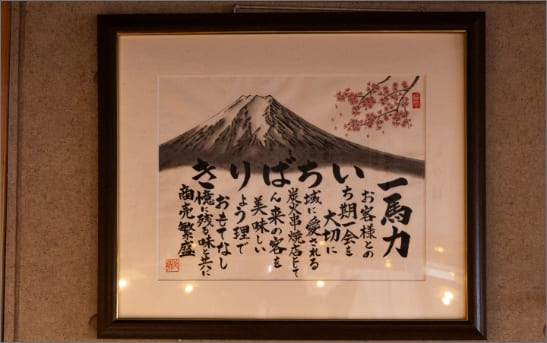 一馬力
お客様との
いち期一会を
大切に
ち域に愛される
炭火串焼店として
ばん来の客を
美味しい
りょう理で
おもてなし
き憶に残る味と共に
商売繁盛